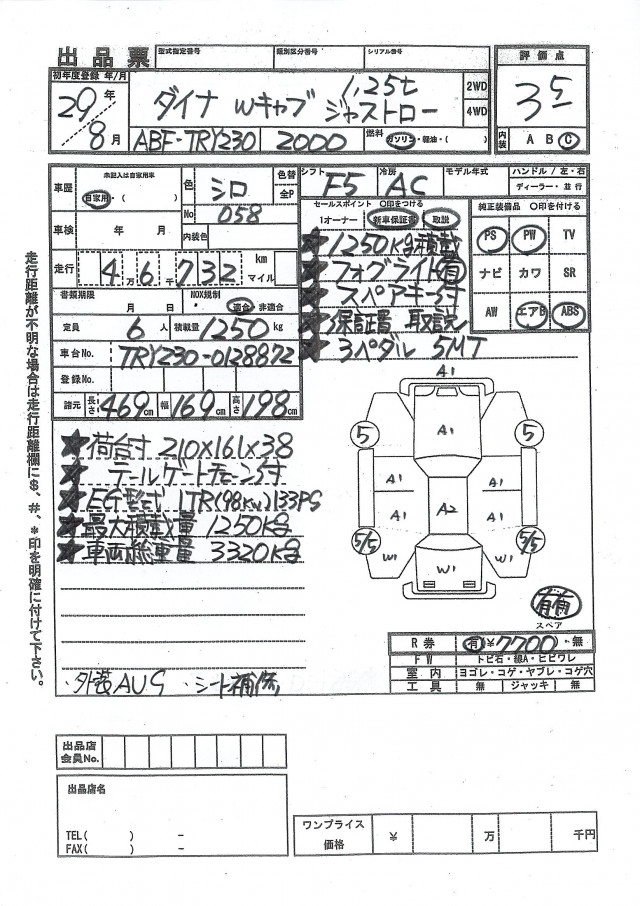 出品票
型式指定番号
類別区分番号
シリアル番号
評価点
初年度登録 年/月
29年
8月
ダイナ Wキャブ 1.25t ジャストロー
2WD
4WD
ABF-TRY230
2000
燃料
ガソリン・軽油・( )
3.5
内装 A B C
車歴
未記入は自家用車
自家用・( )
色
シロ
色替
全P
No 058
シフト F5
冷房 AC
モデル年式
ハンドル / 左・右
ディーラー・並行
車検 年 月
内装色
セールスポイント ○印をつける
1オーナー 新車保証書 取説
純正装備品 ○印を付ける
PS PW TV
ナビ カワ SR
AW エアB ABS
走行 4万6千732 km マイル
★1250kg積載
★フォグライト有
★スペアキー付
★保証書 取説
★3ペダル 5MT
書類期限 月 日
NOX規制 適合・非適合
定員 6人 積載量 1250 kg
車台No. TRY230-0128872
登録No.
諸元 長さ 469cm 幅 169cm 高さ 198cm
★荷台寸 210×161×38
★テールゲートチェーン付
★EG型式 1TR(98kw)133PS
★最大積載量 1250kg
★車両総重量 3320kg
A1
5 A1 5
A1 A1
A1 A2 A1
5/5 5/5
W1 W1 W1
有有
スペア
R券 有 ¥7700・無
FW トビ石・線A・ヒビワレ
室内 ヨゴレ・コゲ・ヤブレ・コゲ穴
工具 無 ジャッキ 無
・外装AUG ・シート補修
走行距離が不明な場合は走行距離欄に$、#、*印を明確に付けて下さい。
出品店
会員No.
出品店名
TEL( ) −
FAX( ) −
ワンプライス
価格
¥ 万 千円